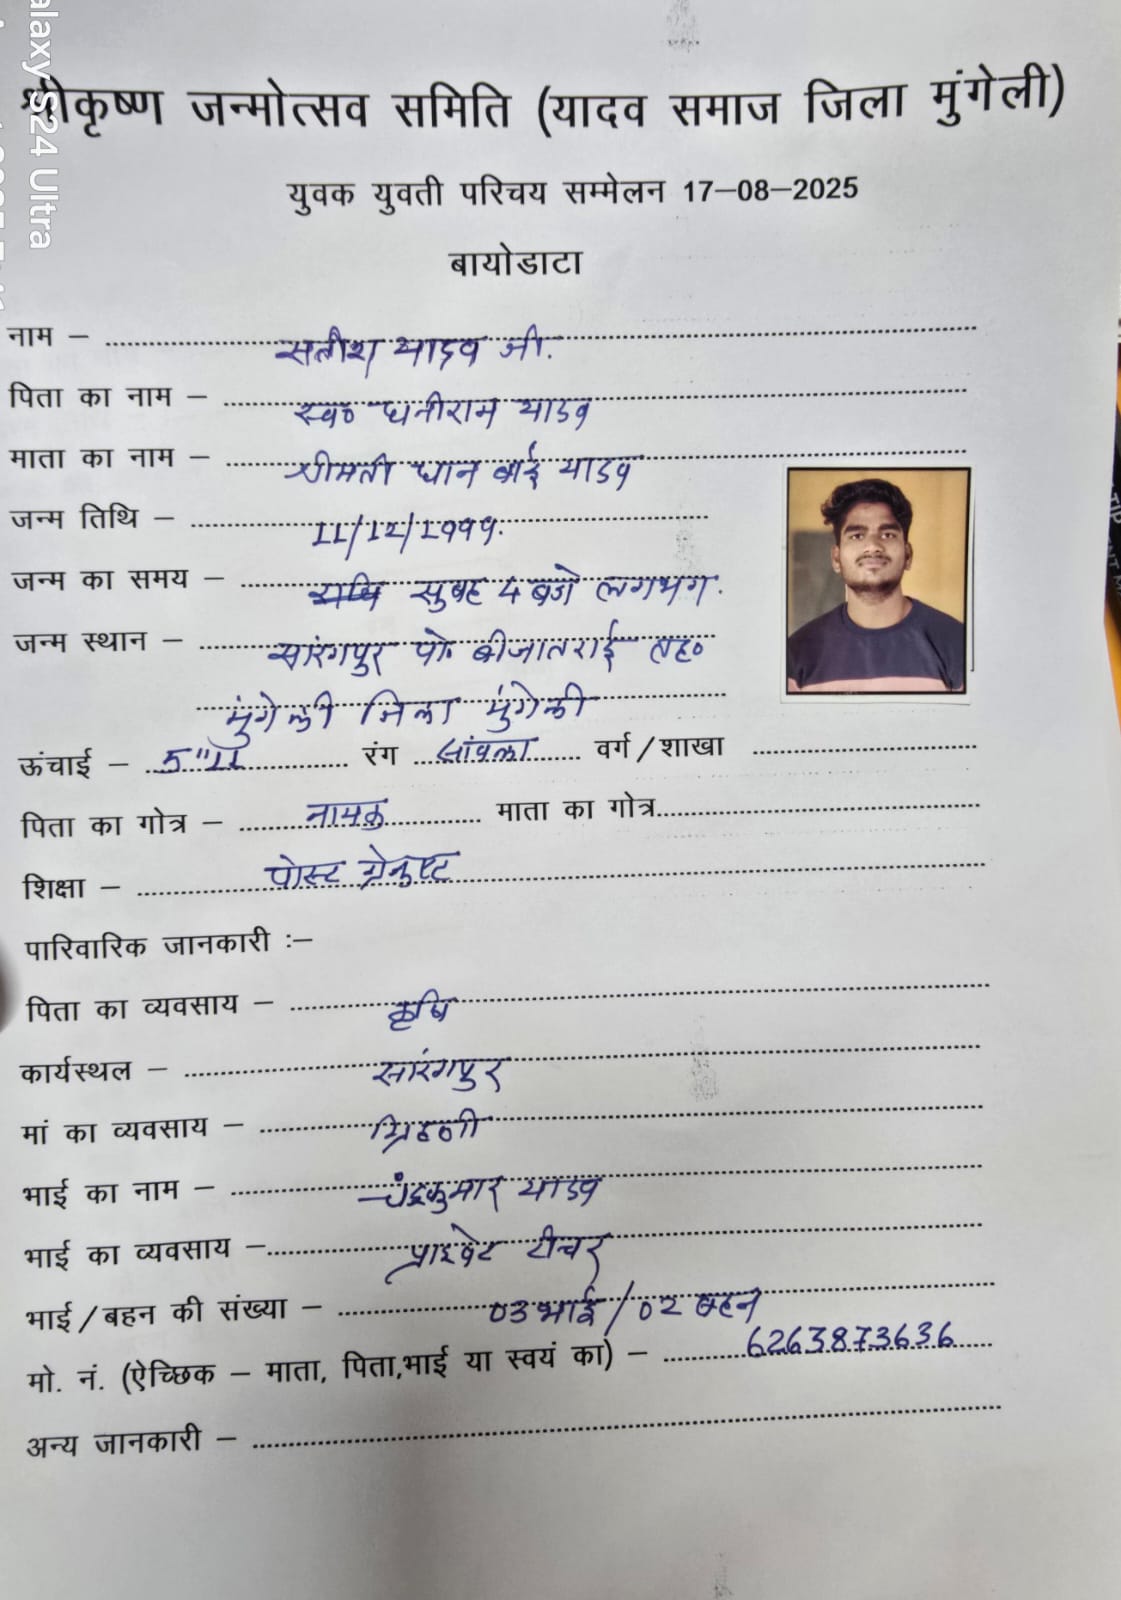 alaxy S24 Ultra
श्रीकृष्ण जन्मोत्सव समिति (यादव समाज जिला मुंगेली)
युवक युवती परिचय सम्मेलन 17-08-2025
बायोडाटा
नाम - सतीश यादव जी.
पिता का नाम - स्व० धनीराम यादव
माता का नाम - श्रीमती धान बाई यादव
जन्म तिथि - 11/12/1999.
जन्म का समय - सुबह 4 बजे लगभग.
जन्म स्थान - सारंगपुर पो. बीजातराई तह०
मुंगेली जिला मुंगेली
ऊंचाई - 5"11 रंग सांवला वर्ग/शाखा
पिता का गोत्र - नामक माता का गोत्र
शिक्षा - पोस्ट ग्रेजुएट
पारिवारिक जानकारी :-
पिता का व्यवसाय - कृषि
कार्यस्थल - सारंगपुर
मां का व्यवसाय - ग्रिहणी
भाई का नाम - चंद्रकुमार यादव
भाई का व्यवसाय - प्राइवेट टीचर
भाई/बहन की संख्या - 03 भाई / 02 बहन
मो. नं. (ऐच्छिक - माता, पिता,भाई या स्वयं का) - 6263873636
अन्य जानकारी -